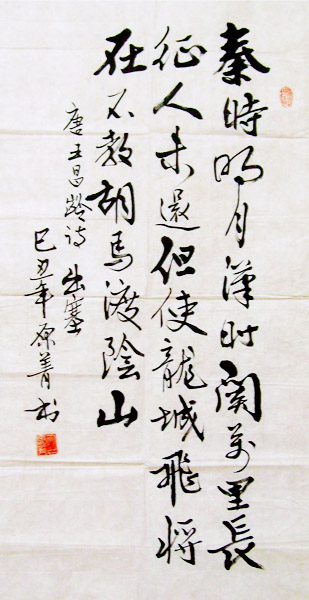 秦時明月漢时関萬里長
征人未還但使龍城飛將
在不教胡馬渡陰山
唐王昌齡詩 出塞
己丑年 原菁书